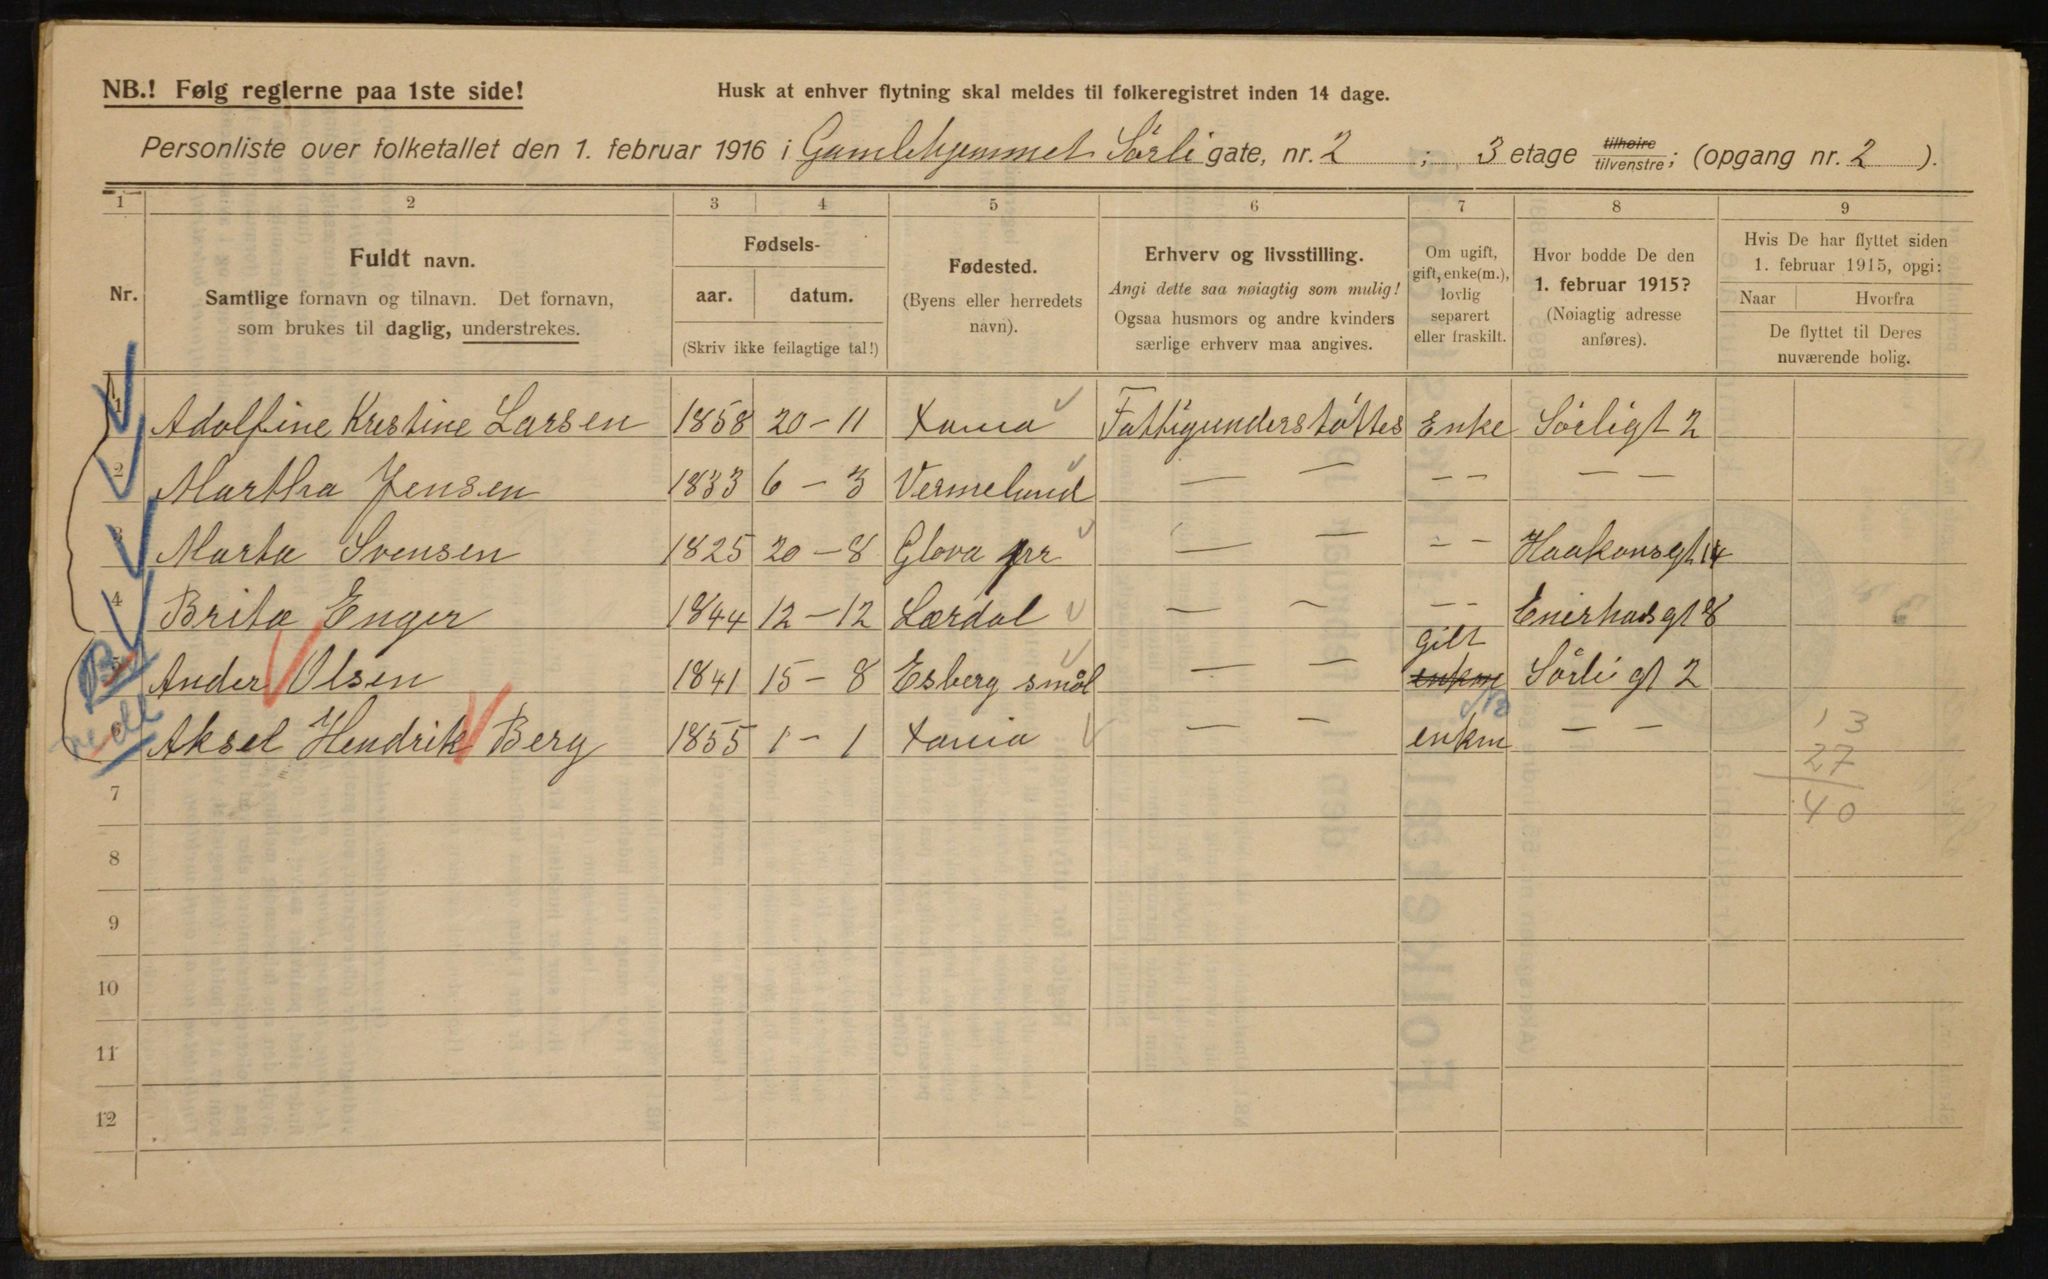 NB.! Følg reglerne paa 1ste side!
Husk at enhver flytning skal meldes til folkeregistret inden 14 dage.
Personliste over folketallet den 1. februar 1916 i Gamlehjemmet Sörli gate, nr. 2 ; 3 etage tilhøire tilvenstre; (opgang nr. 2 ).
1 2 3 4 5 6 7 8 9
Nr.
Fuldt navn.
Samtlige fornavn og tilnavn. Det fornavn,
som brukes til daglig, understrekes.
Fødsels-
aar. datum.
(Skriv ikke feilagtige tal!)
Fødested.
(Byens eller herredets
navn).
Erhverv og livsstilling.
Angi dette saa nøiagtig som mulig!
Ogsaa husmors og andre kvinders
særlige erhverv maa angives.
Om ugift,
gift, enke(m.),
lovlig
separert
eller fraskilt.
Hvor bodde De den
1. februar 1915?
(Nøiagtig adresse
anføres).
Hvis De har flyttet siden
1. februar 1915, opgi:
Naar Hvorfra
De flyttet til Deres
nuværende bolig.
1 Adolfine Kristine Larsen 1858 20 – 11 Xania Fattigunderstöttes Enke Sörligt 2
2 Martha Jensen 1833 6 – 3 Vermelund — — – – — —
3 Marta Svensen 1825 20 – 8 Glova pr — — – – Haakonsgt 14
4 Brita Enger 1844 12 – 12 Lærdal — — – – Enerhausgt 8
5 Ander Olsen 1841 15 – 8 Esberg smål — — gift enkm Sörligt 2
6 Aksel Hendrik Berg 1855 1 – 1 Xania — — enkm — —
13
27
40
7
8
9
10
11
12